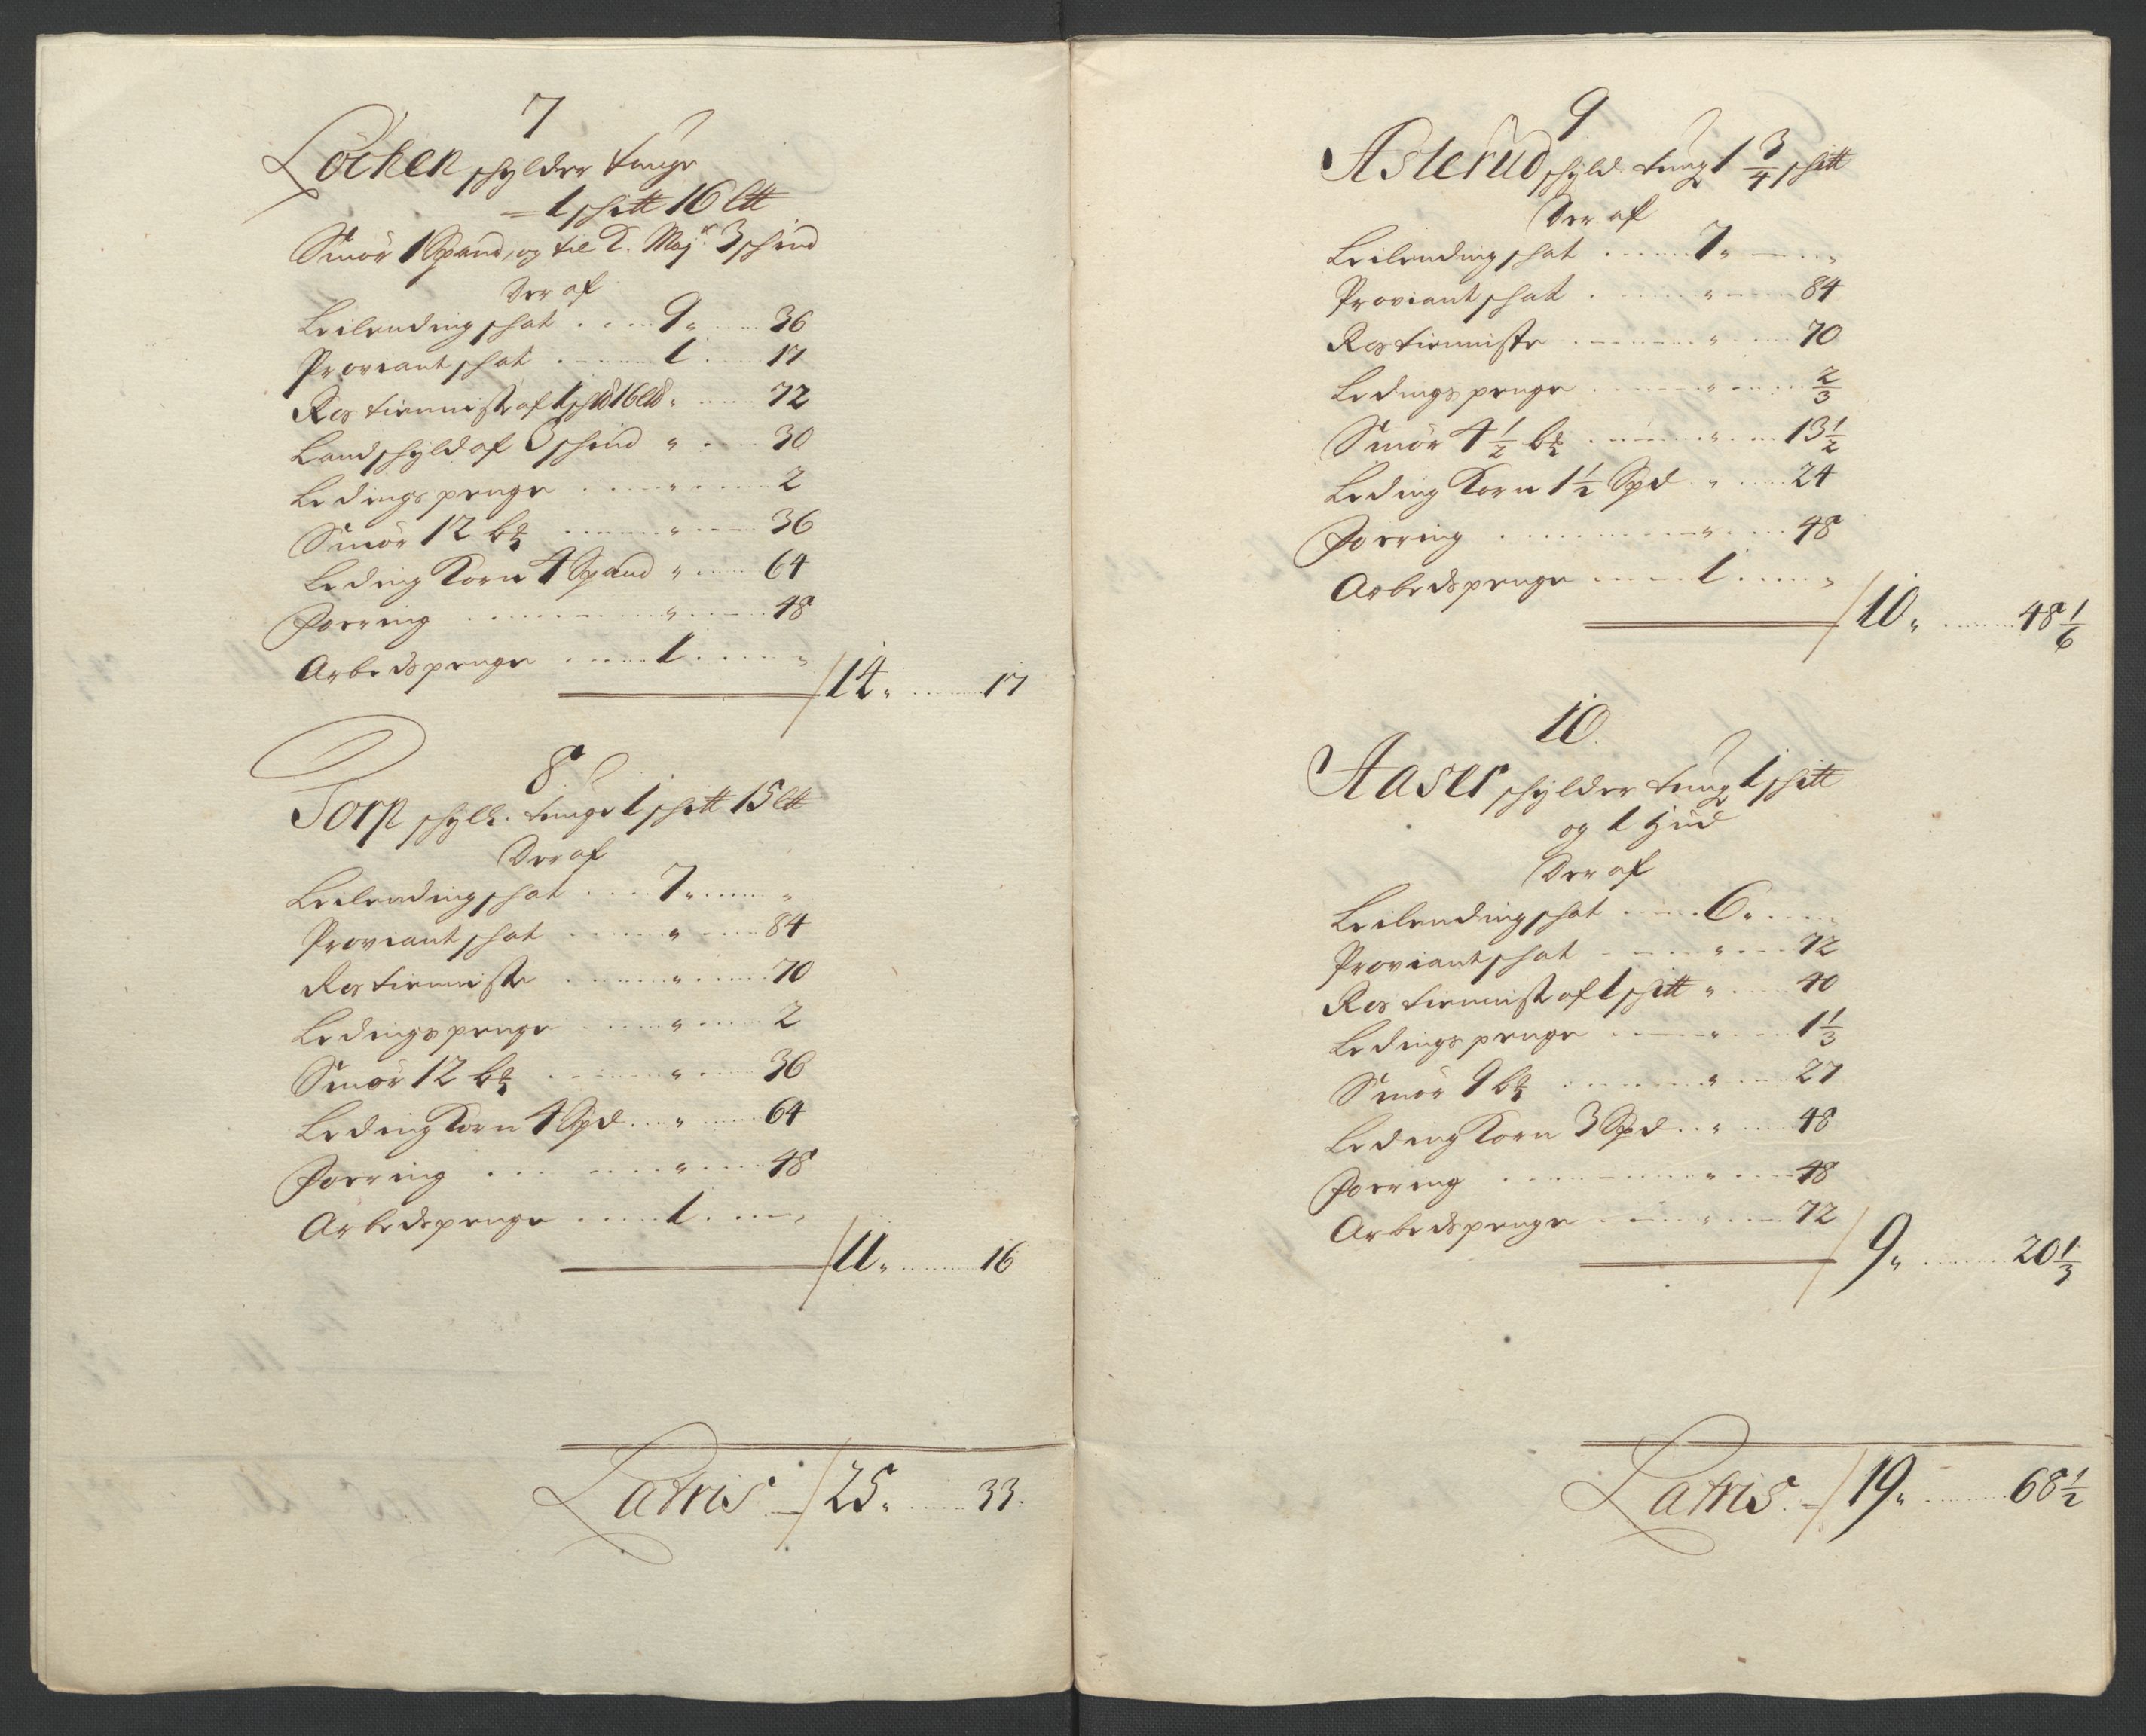 7
Löcken schylder tunge
= 1 schtt 16 ltt
Smör 1 Spand, og til K. Majr. 3 schind
Der af
Leilending schat .... 9 " .... 36
Proviant schat ........ 1 .... 17
Ros tienniste af 1 sch℔ 16 l℔ " .... 72
Landschyld af 3 schind " .... 30
Ledings penge .... " .... 2
Smör 12 b℔ .... " .... 36
Leding Korn 4 Spand " .... 64
Foering .... " .... 48
Arbedspenge .... 1 .... "
/14 " .... 17
8
Torp schylder tunge 1 schtt 15 ltt
Der af
Leilending schat .... 7 " .... "
Proviant schat .... " .... 84
Ros tienniste .... " .... 70
Ledings penge .... " .... 2
Smör 12 b℔ .... " .... 36
Leding Korn 4 Spd .... " .... 64
Foering .... " .... 48
Arbedspenge .... 1 .... "
/11 " .... 16
Latris — /25 " .... 33.
9
Asterud schyld tung 1 3/4 schtt
Der af
Leilending schat .... 7 " .... "
Proviant schat .... " .... 84
Ros tienniste .... " .... 70
Ledings penge .... " .... 2/3
Smör 4 1/2 b℔ .... " .... 13 1/2
Leding Korn 1 1/2 Spd .. " .... 24
Foering .... " .... 48
Arbedspenge .... 1 .... "
/10 " .... 48 1/6
10.
Aaser schylder tung 1 schtt
og 1 Hud
Der af
Leilending schat .... 6 " .... "
Proviant schat .... " .... 72
Ros tienniste af 1 schtt " .... 40
Ledings penge .... " .... 1 1/3
Smör 9 b℔ .... " .... 27
Leding Korn 3 Spd .. " .... 48
Foering .... " .... 48
Arbedspenge .... " .... 72
/9 " .... 20 1/3
Latris. — /19 " .... 68 1/2